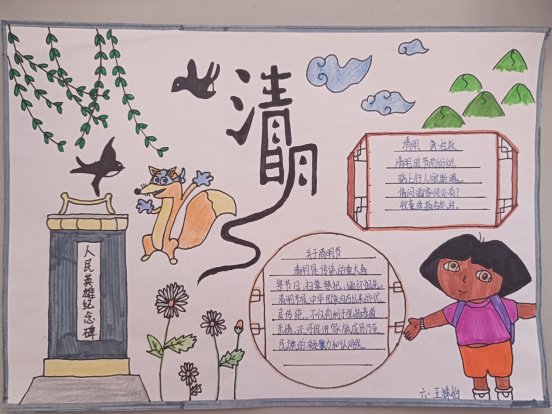 清明
清明 唐·杜牧
清明时节雨纷纷,
路上行人欲断魂。
借问酒家何处有?
牧童遥指杏花村。
人民英雄纪念碑
关于清明节
清明是传统的重大春
祭节日,扫墓祭祀、缅怀祖先,
是中华民族自古以来的优
良传统,不仅有利于弘扬孝道
亲情、还可促进家族成员乃至
民族的凝聚力和认同感。
六.王